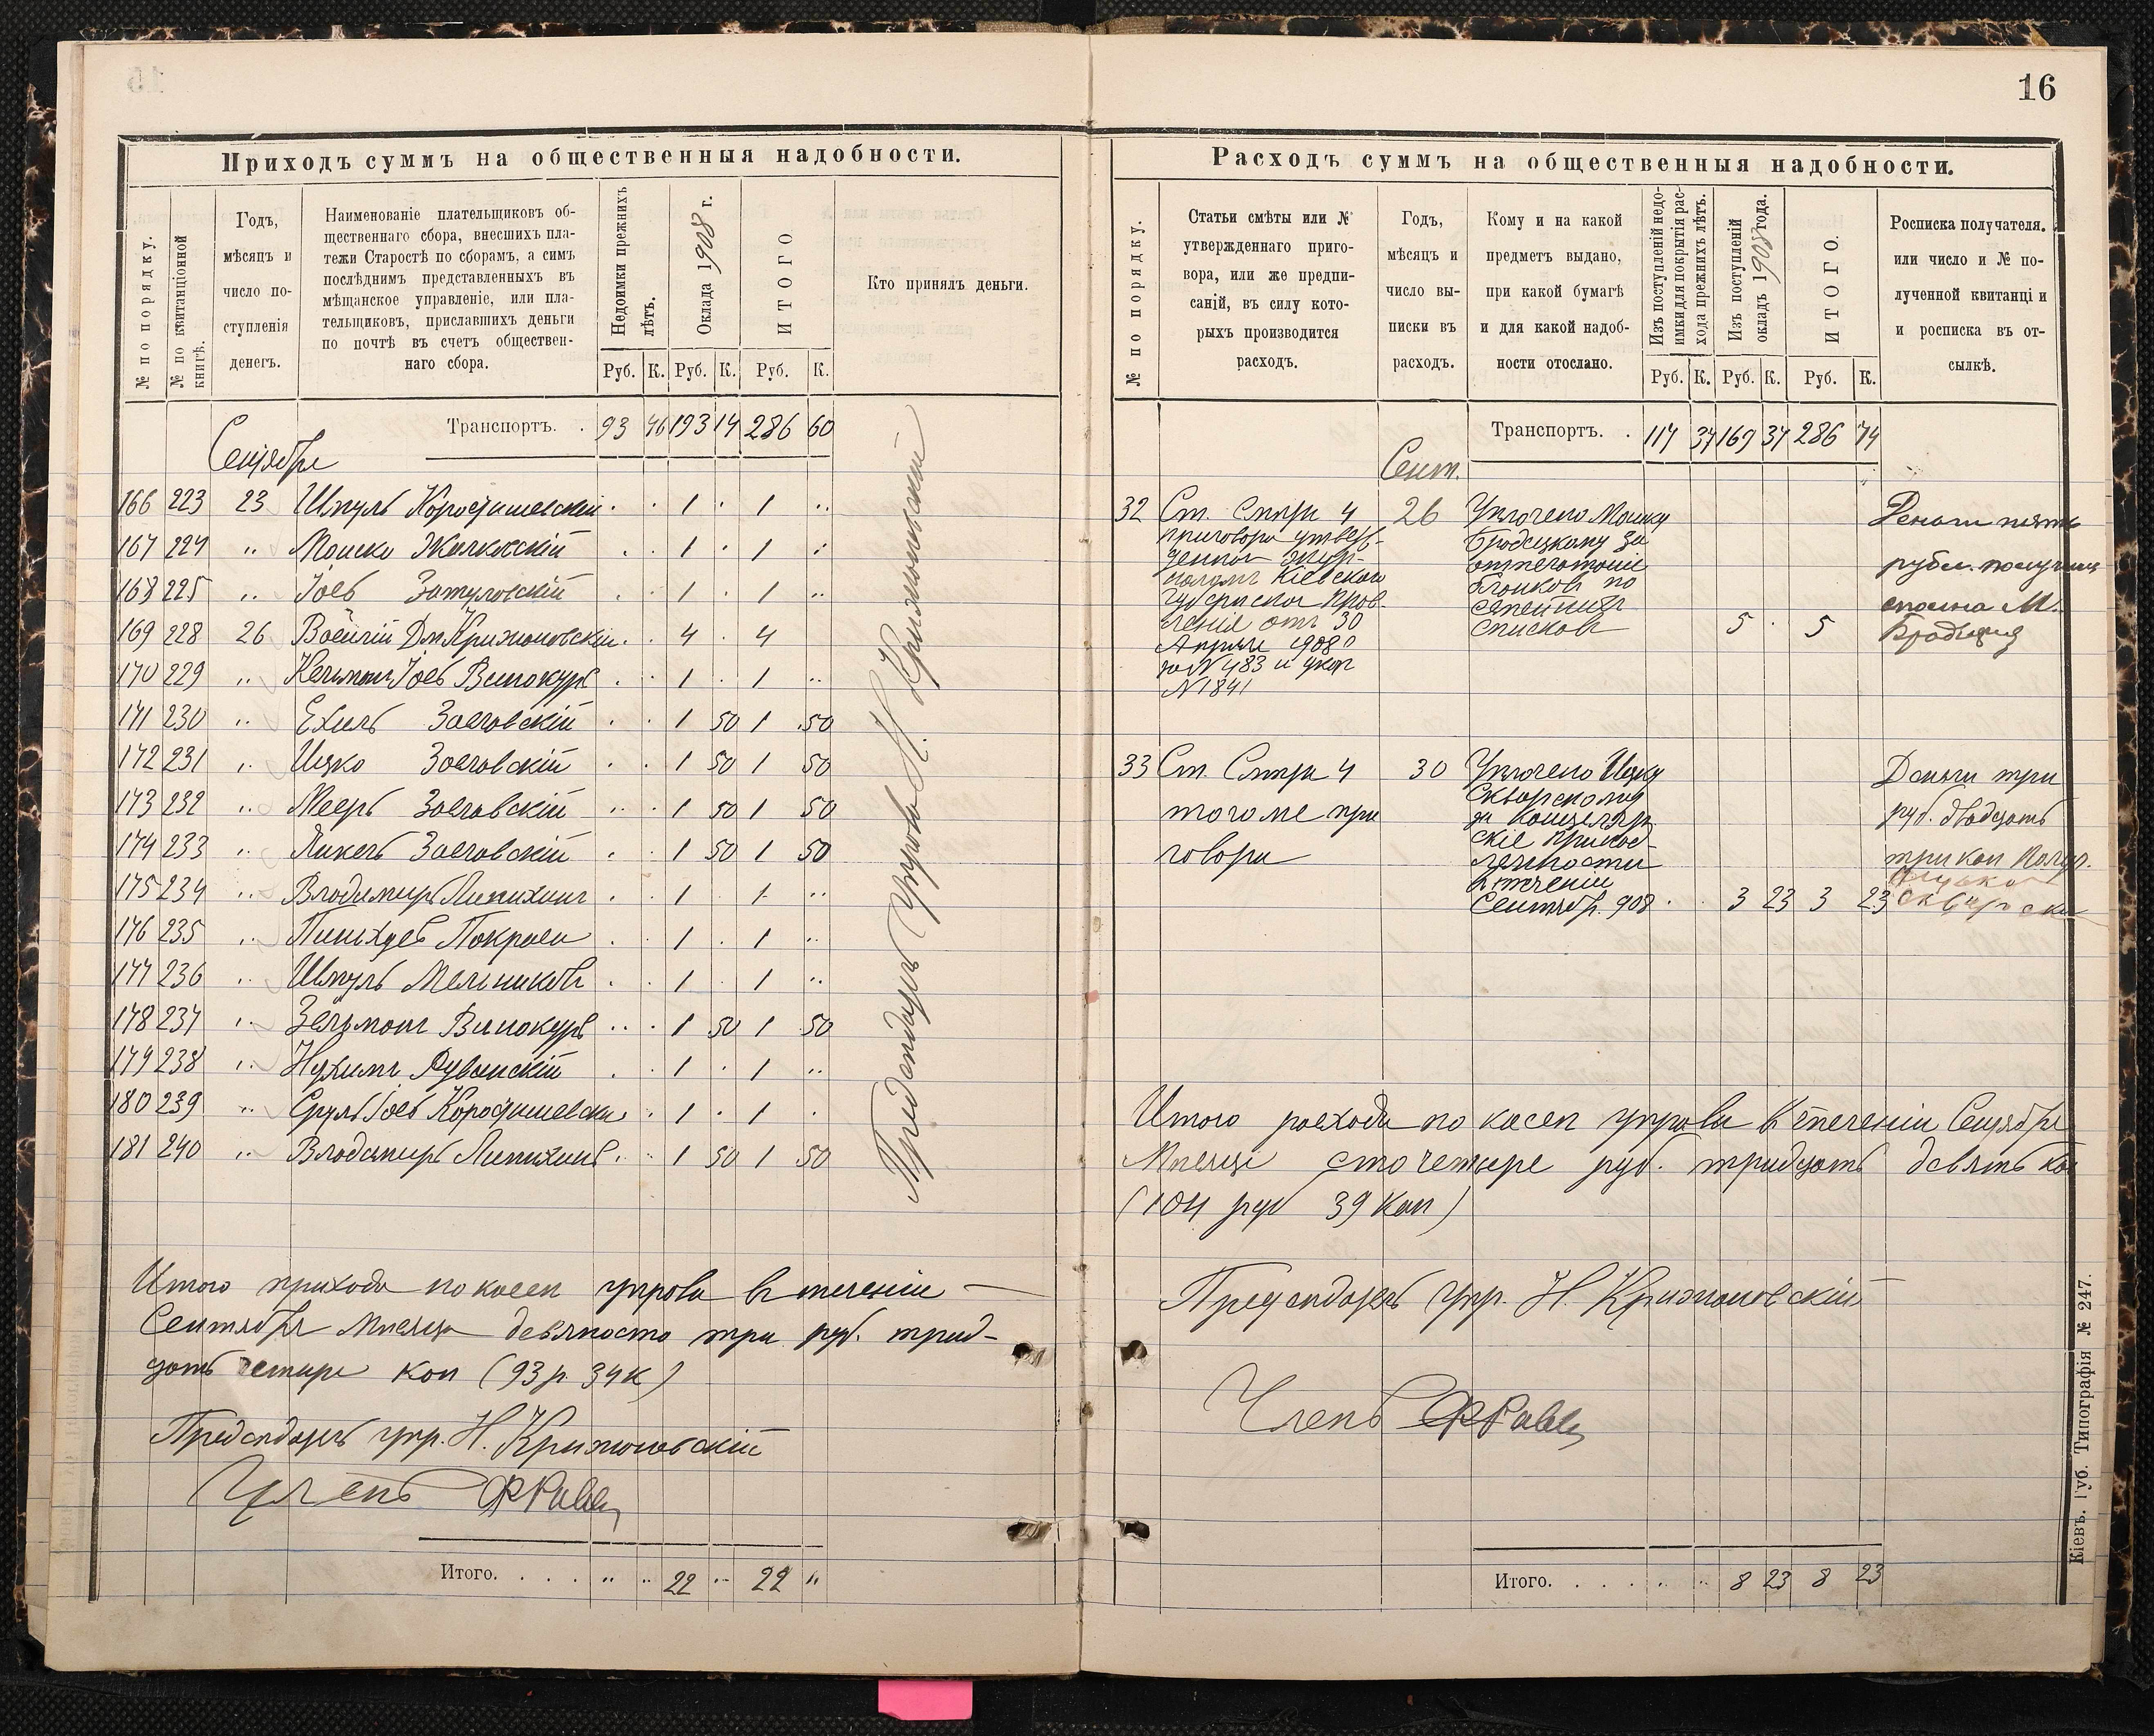 16
Приходъ суммъ на общественныя надобности.
№ по порядку.
№ по квитанціонной книгѣ.
Годъ,
мѣсяцъ и
число по-
ступленія
денегъ.
Наименованіе плательщиковъ об-
щественнаго сбора, внесшихъ пла-
тежи Старостѣ по сборамъ, а симъ
послѣднимъ представленныхъ въ
мѣщанское управленіе, или пла-
тельщиковъ, приславшихъ деньги
по почтѣ въ счетъ обществен-
наго сбора.
Недоимки прежнихъ лѣтъ.
Оклада 1908 г.
ИТОГО
Кто принялъ деньги.
Руб. К. Руб. К. Руб. К.
Транспортъ. . 93 46 193 14 286 60
Сентября
166 223 23 Шмуль Коростишевскій . . 1 . 1 ..
167 224 .. Мошко . . 1 . 1 ..
168 225 .. Іосъ Затуловскій . . 1 . 1 ..
169 228 26 Дм Крижановскій . . 4 . 4
170 229 .. Кельманъ Іосъ Винокуръ . . 1 . 1 ..
171 230 .. Ехиль Заславскій . . 1 50 1 50
172 231 .. Ицко Заславскій . . 1 50 1 50
173 232 .. Мееръ Заславскій .. . 1 50 1 50
174 233 .. Янкель Заславскій . . 1 50 1 50
175 234 .. Владимиръ Липихинъ . . 1 . 1 ..
176 235 .. Пинхусъ Покраса . . 1 . 1 ..
177 236 .. Шмуль Мельниковъ . . 1 . 1 ..
178 237 .. Зельманъ Винокуръ .. . 1 50 1 50
179 238 .. Нухимъ . . 1 . 1 ..
180 239 .. Сруль Іосъ Коростишевскій . 1 . 1 .
181 240 .. Владимиръ Липихинъ . .. 1 50 1 50
Предсѣдатель Управы Н. Крижановскій
Итого прихода по кассѣ управы въ теченіи
Сентября Мѣсяца девяносто три руб. трид-
цать четыре коп (93 р. 34 к)
Предсѣдатель упр. Н. Крижановскій
Членъ
Итого. . . . .. .. 22 .. 22 "
Расходъ суммъ на общественныя надобности.
№ по порядку.
Статьи смѣты или №
утвержденнаго приго-
вора, или же предпи-
саній, въ силу кото-
рыхъ производится
расходъ.
Годъ,
мѣсяцъ и
число вы-
писки въ
расходъ.
Кому и на какой
предметъ выдано,
при какой бумагѣ
и для какой надоб-
ности отослано.
Изъ поступленій недо-
имки для покрытія рас-
хода прежнихъ лѣтъ.
Изъ поступленій
окладъ 1908 года.
ИТОГО.
Росписка получателя.
или число и № по-
лученной квитанціи
и росписка въ от-
сылкѣ.
Руб. К. Руб. К. Руб. К.
Транспортъ. . 117 37 169 37 286 74
Сент.
32 Ст. Смѣты 4 26 Уплочено Мошку
приговора утверж-
деннаго жур-
наломъ Кіевскаго
Губернскаго Прав-
ленія отъ 30
Апрѣля 1908
за № 483 и указ
№ 1841
Бродецкому за
отпечатаніе
бланковъ по
семейнымъ
списковъ 5 . 5
Деньги пять
рублей получилъ
сполна М.
Бродецкій
33 Ст. Смѣты 4 30 Уплочено Ицку
того же при
говора
Скворскому
за канцеляр-
скіе принад-
лежности
въ теченіи
Сентябр. 908 . . 3 23 3 23
Деньги три
руб. двадцать
три коп Получ.
Итого расхода по кассѣ управы въ теченіи Сентября
Мѣсяца сто четыре руб. тридцать девять коп
(104 руб 39 Коп)
Предсѣдатель упр. Н. Крижановскій
Членъ
Итого. . . . . .. .. 8 23 8 23
Кіевъ. Губ. Типографія № 247.